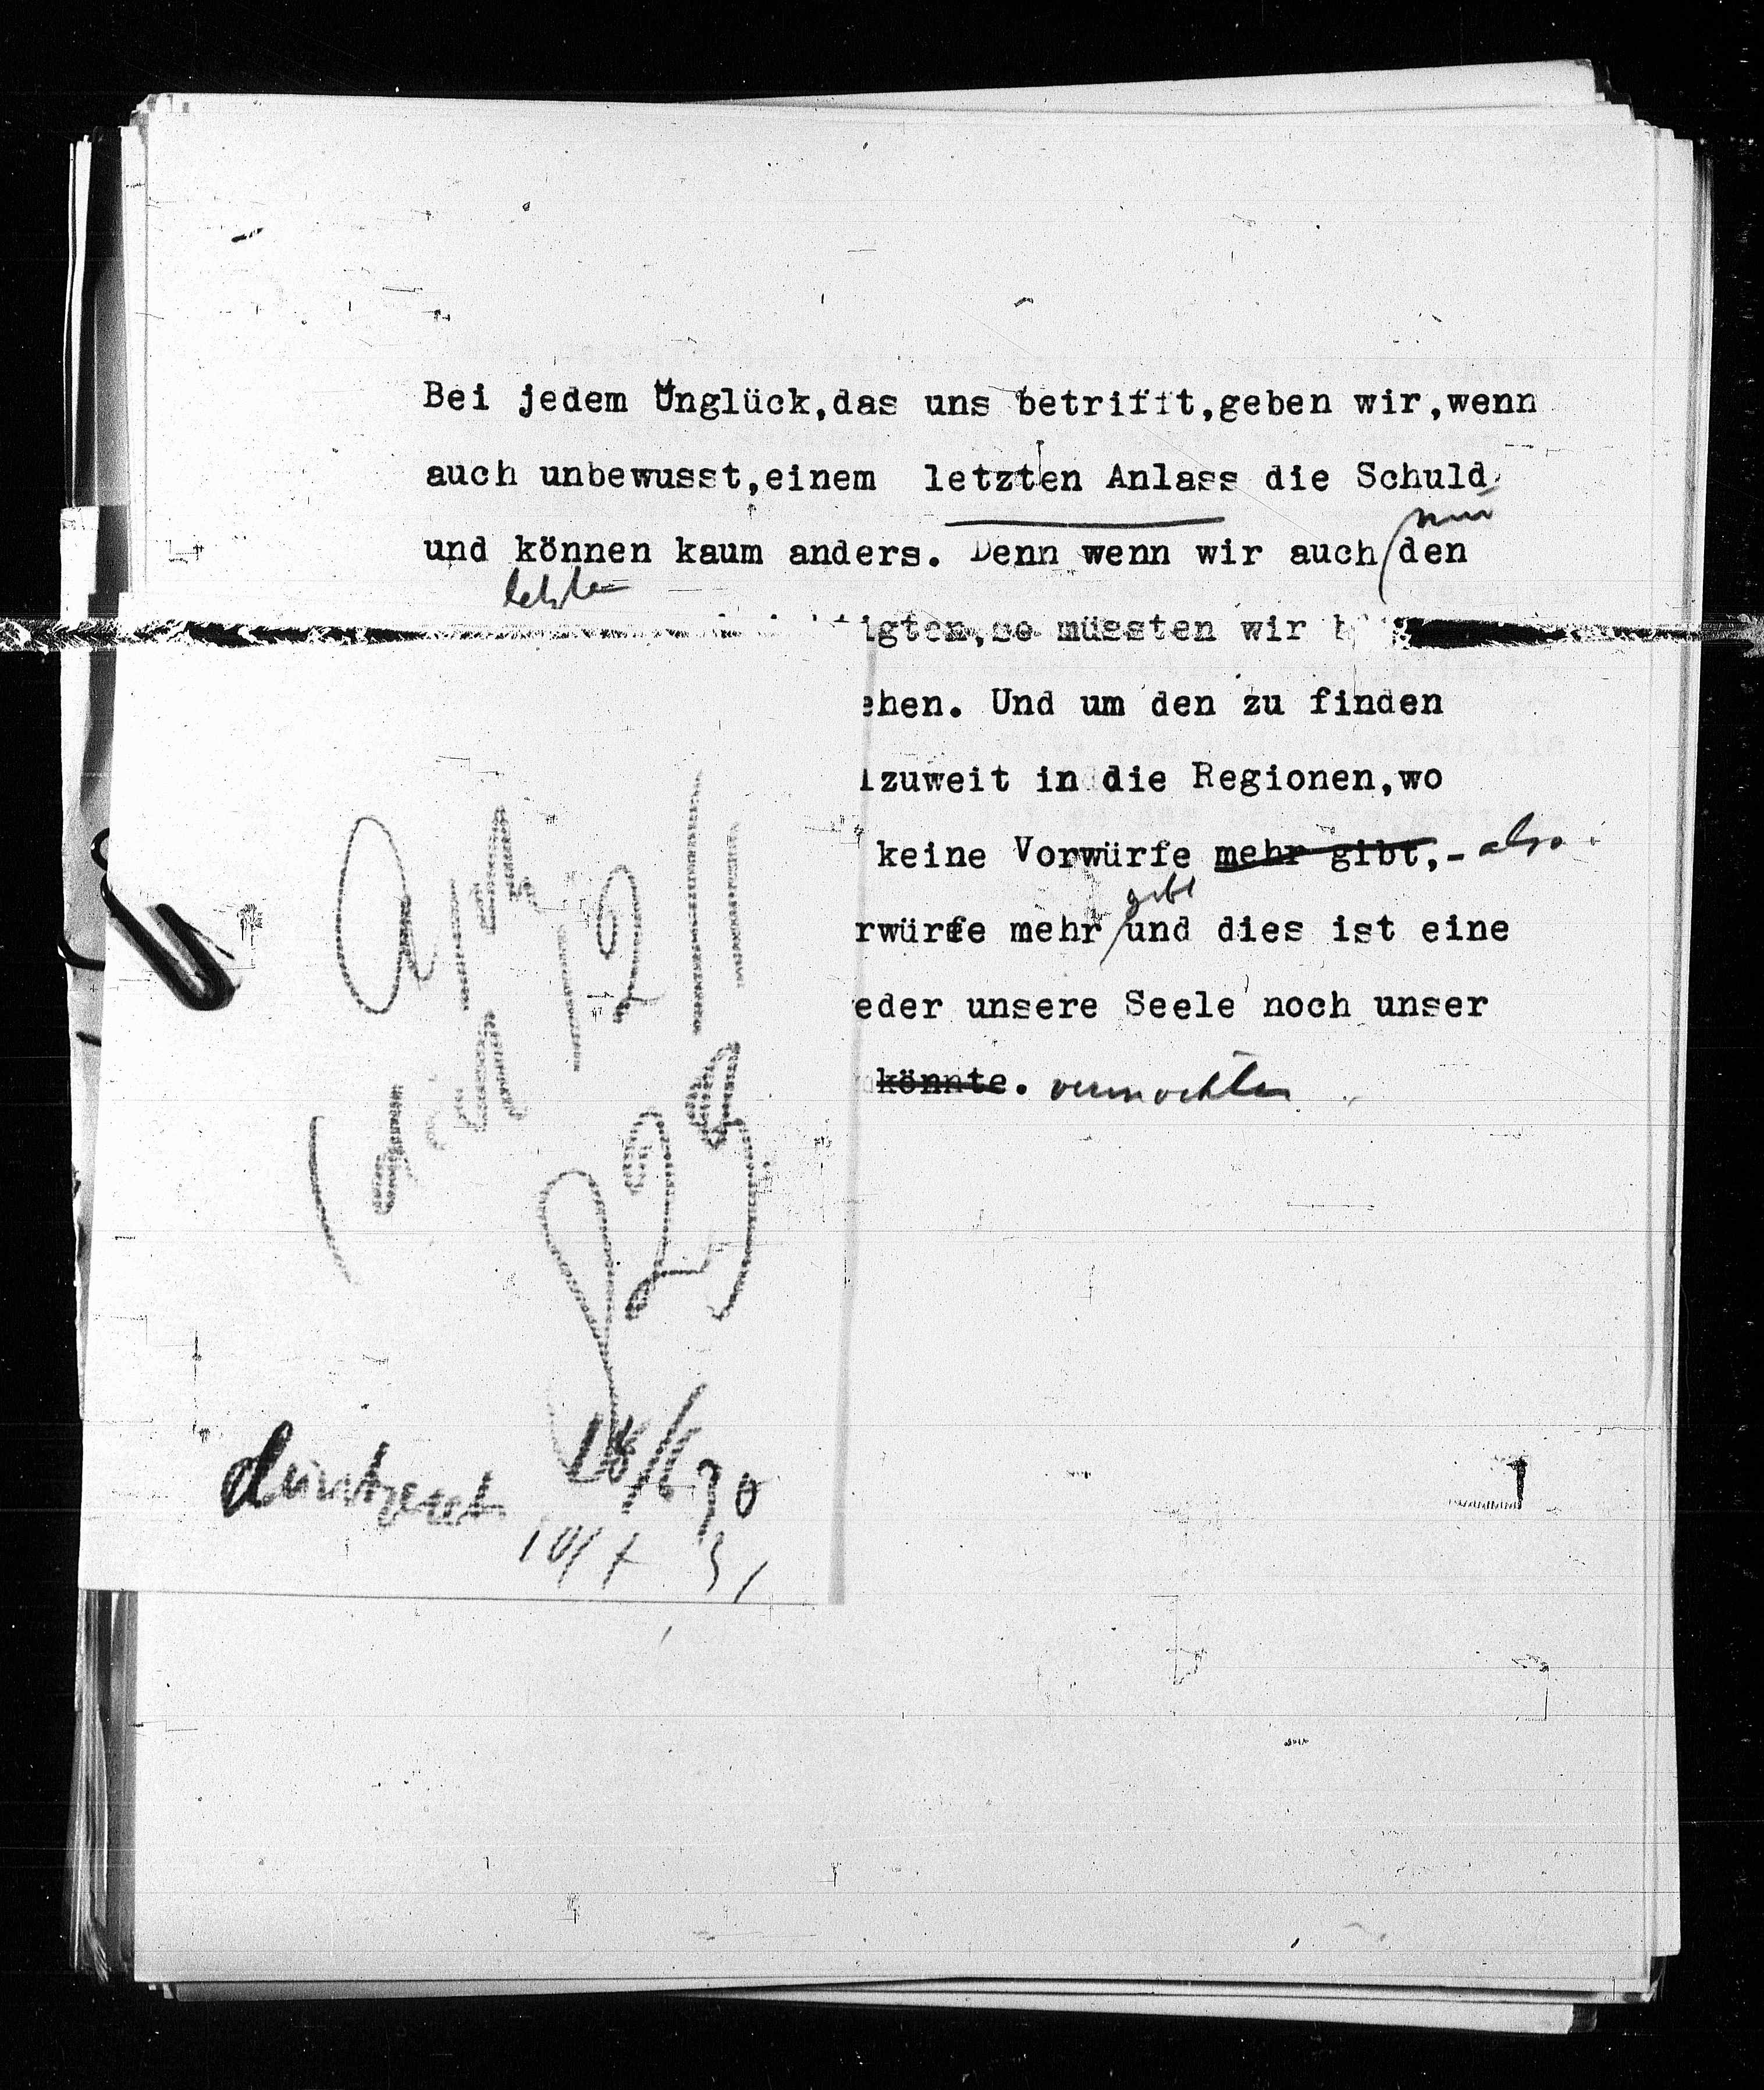 Bei jedem Unglück,das uns betrifft,geben wir,wenn
auch unbewusst,einem letzten Anlass die Schuld,
nur
und können kaum anders. Denn wenn wir auch den
letzten
igten,so müssten wir
ehen. Und um den zu finden
lzuweit in die Regionen,wo
keine Vorwürfe mehr gibt,- also
gibt
rwürfe mehr und dies ist eine
eder unsere Seele noch unser
könnte. vermöchten
Durchgesehn 18/6 30
10/7 31